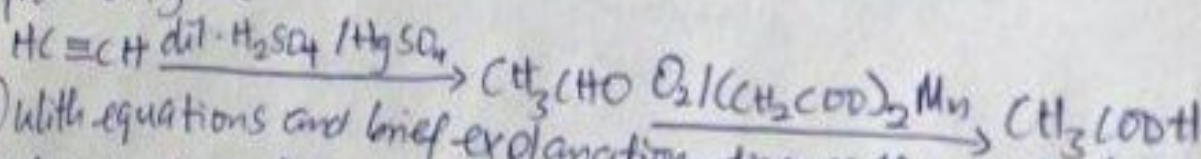 HC≡CH dil·H₂SO₄/HgSO₄ → CH₃CHO O₂/(CH₃COO)₂Mn → CH₃COOH
) With equations and brief explanation